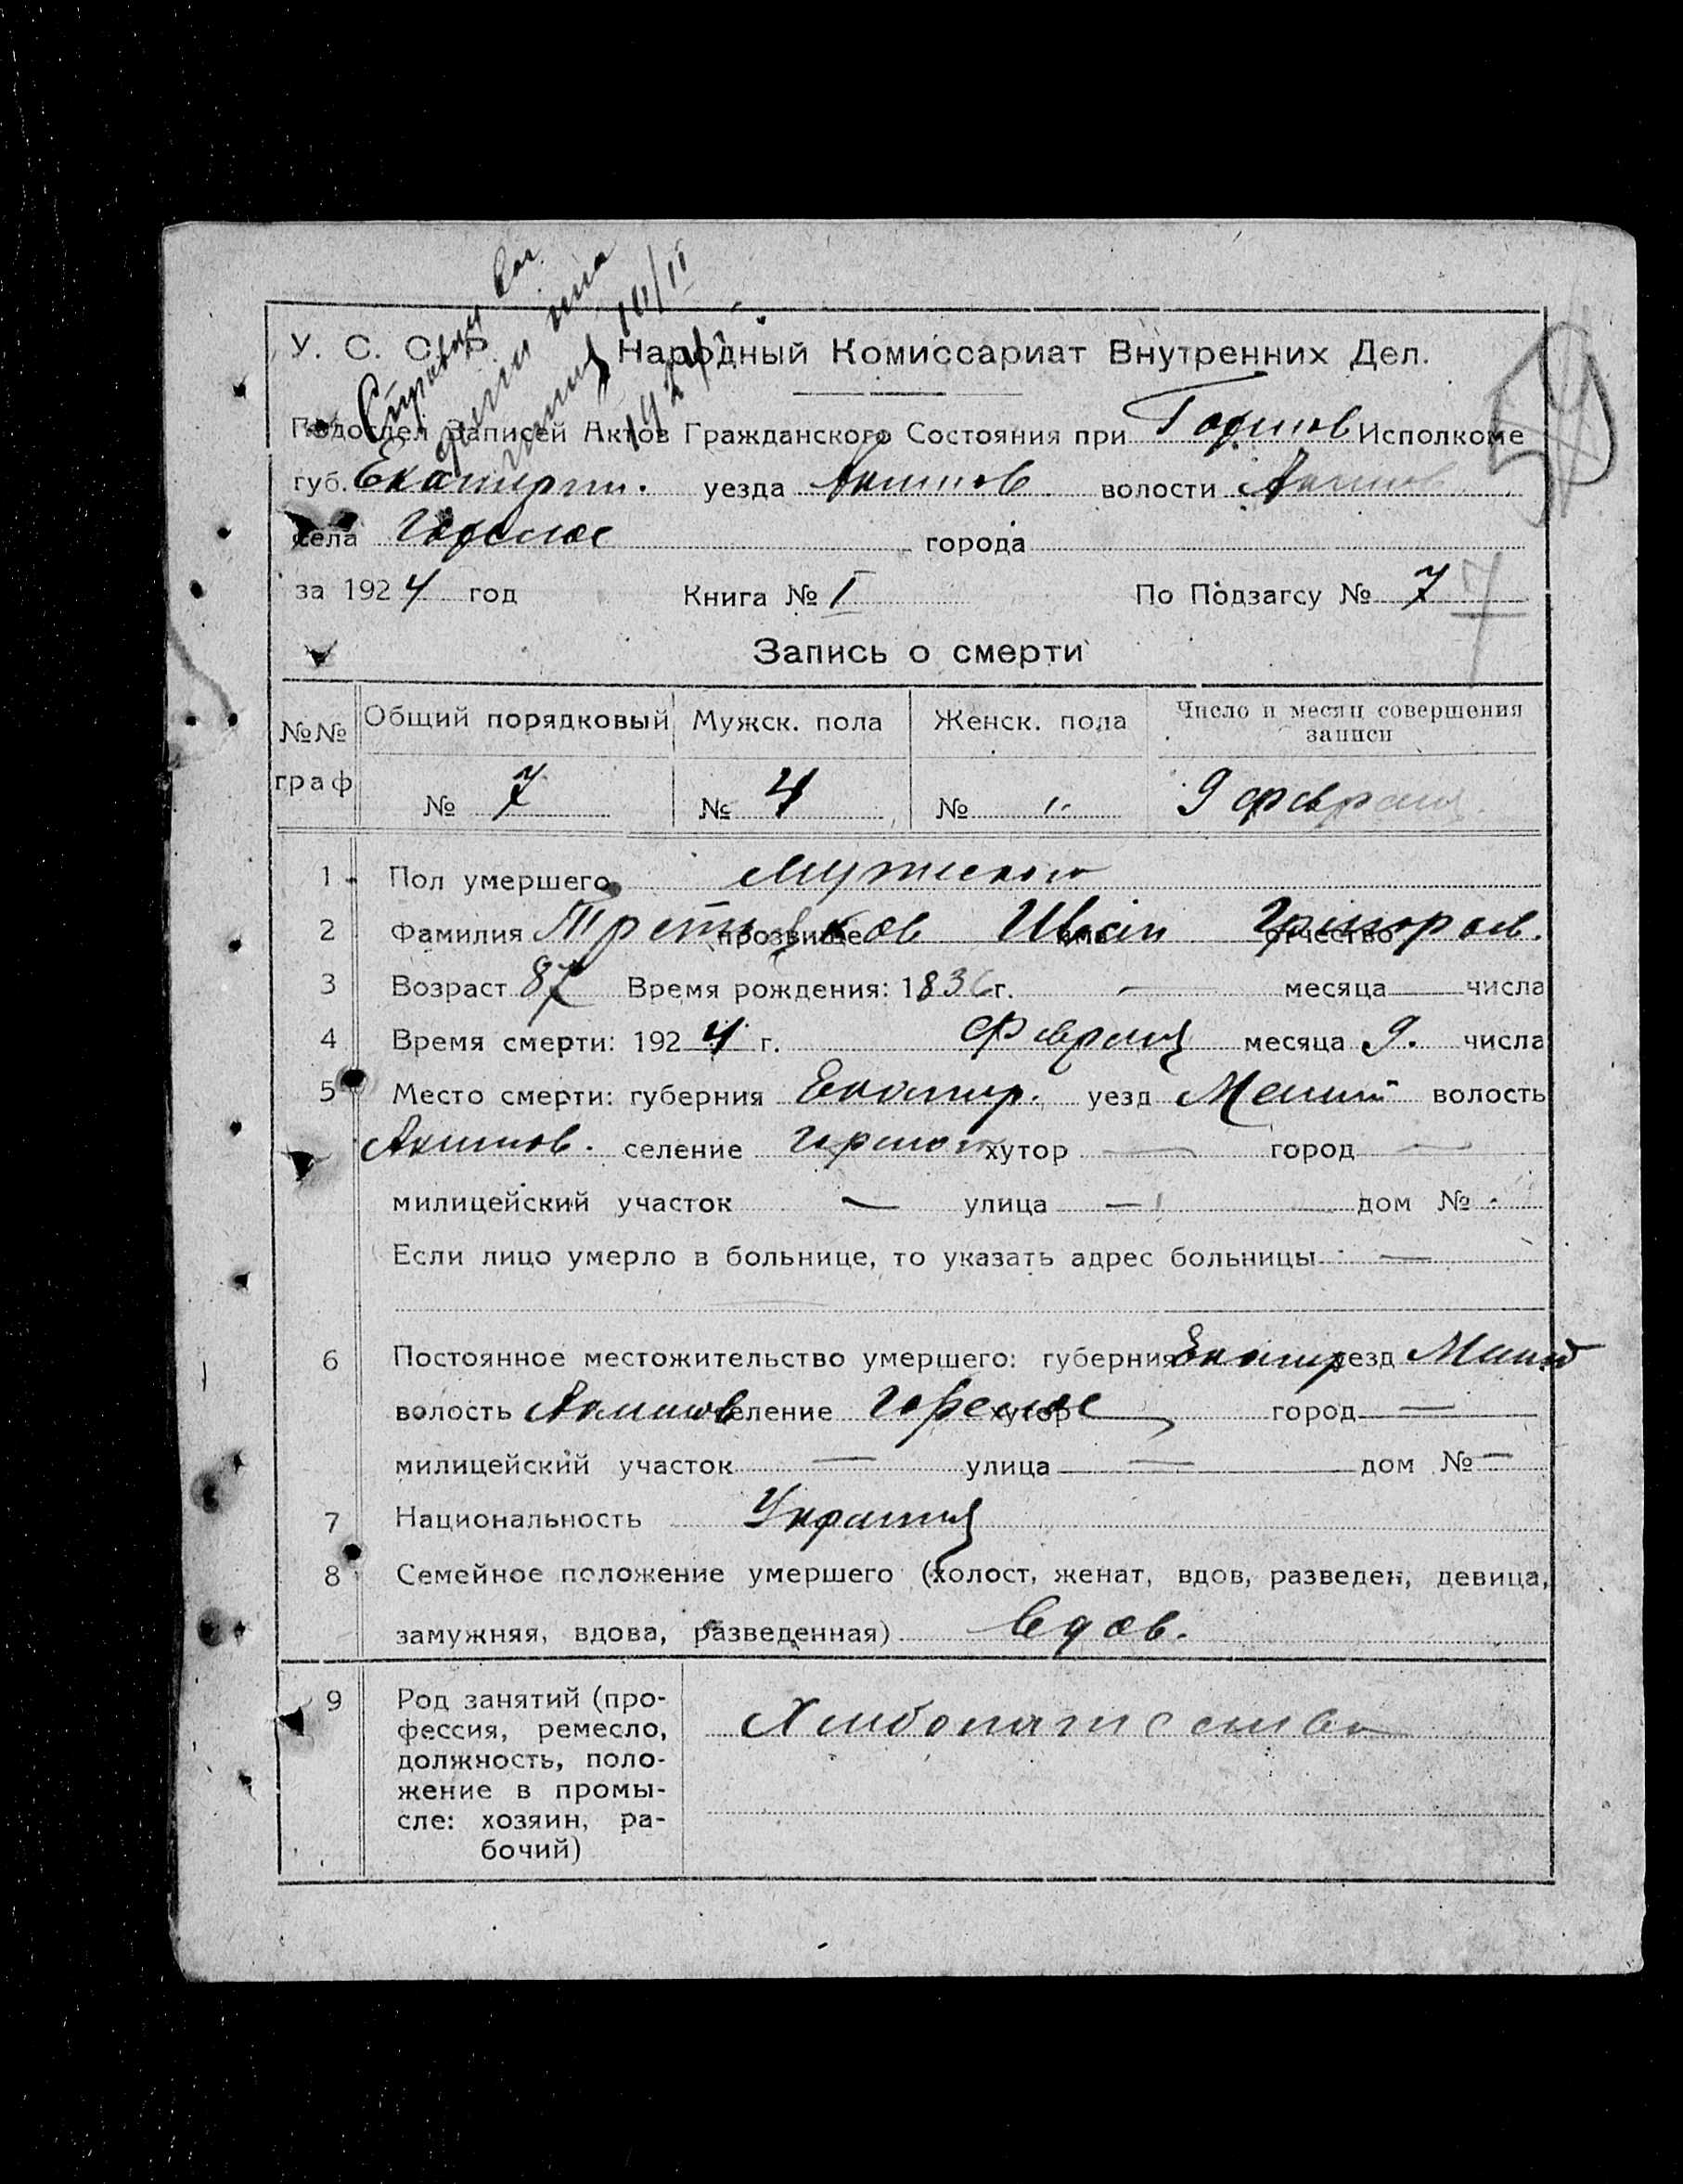 У. С. С. Р. Народный Комиссариат Внутренних Дел.
Подотдел Записей Актов Гражданского Состояния при Исполкоме
губ. Екатерин. уезда Акимов волости Акимов
села города
за 1924 год Книга № I По Подзагсу № 7 7
Запись о смерти
№№ граф Общий порядковый Мужск. пола Женск. пола Число и месяц совершения записи
№ 7 № 4 № 9 февраля
1 Пол умершего мужского
2 Фамилия Третьяков прозвище Иван имя Григорьев. отчество
3 Возраст 87 Время рождения: 1836 г. — месяца — числа
4 Время смерти: 1924 г. Февраля месяца 9. числа
5 Место смерти: губерния Екатер. уезд Мелит волость
Акимов. селение хутор — город —
милицейский участок — улица — дом № -
Если лицо умерло в больнице, то указать адрес больницы —
6 Постоянное местожительство умершего: губерния Екатер уезд Мелит
волость Акимов селение хутор — город —
милицейский участок — улица — дом № —
7 Национальность
8 Семейное положение умершего (холост, женат, вдов, разведен, девица,
замужняя, вдова, разведенная) вдов.
9 Род занятий (про-
фессия, ремесло,
должность, поло-
жение в промы-
сле: хозяин, ра-
бочий)